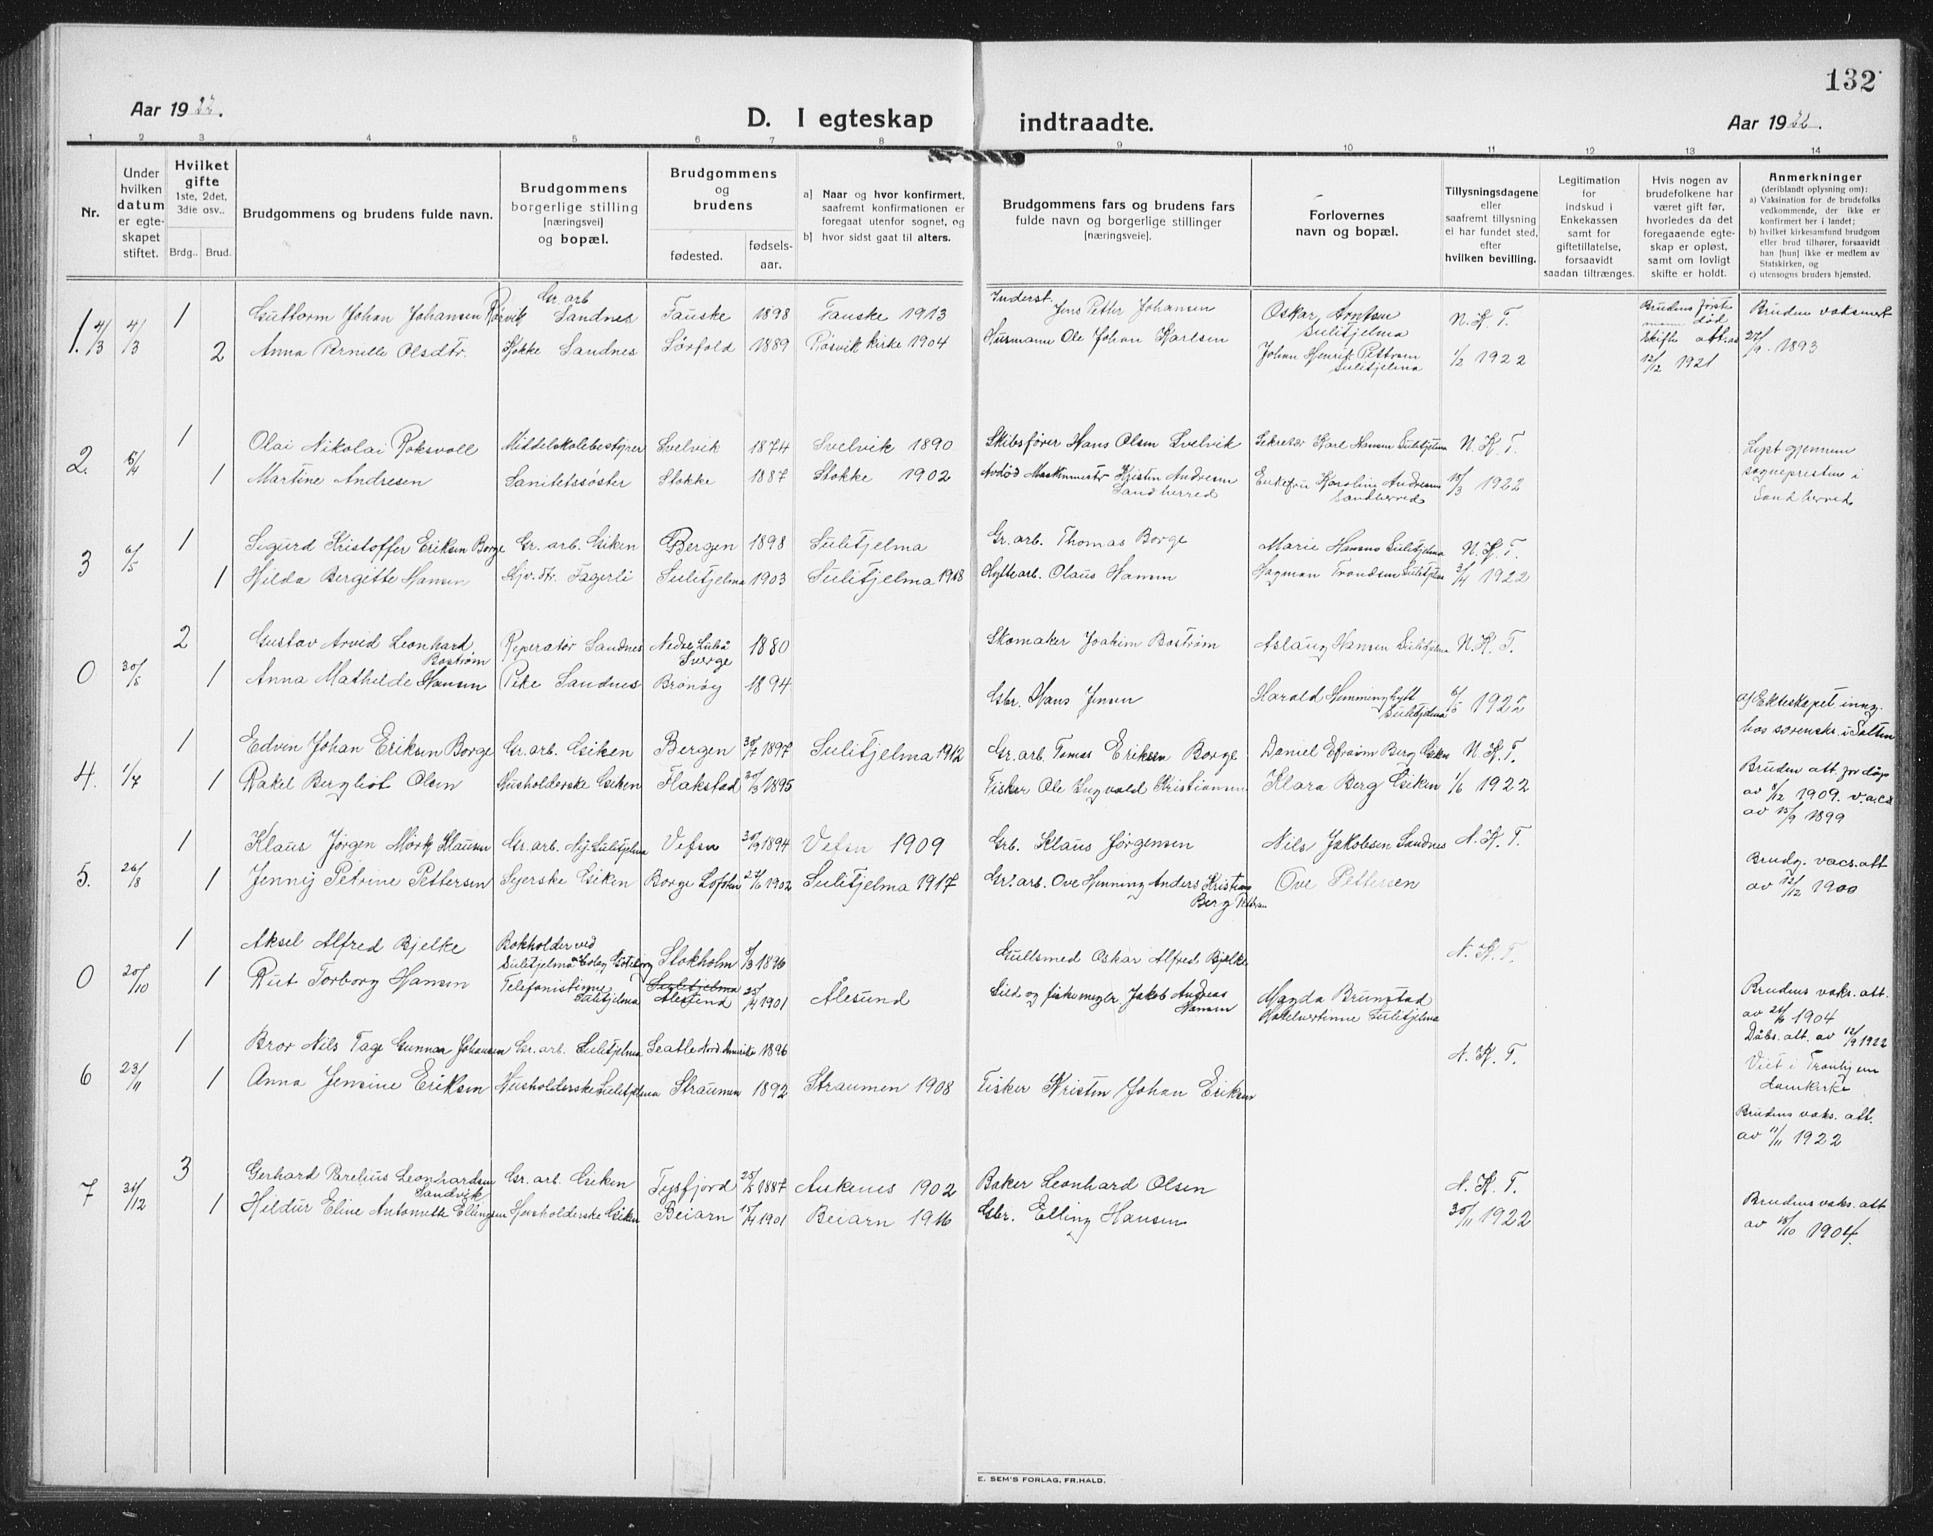 132
Aar 1922.
D. I egteskap indtraadte.
Aar 1922.
1 2 3 4 5 6 7 8 9 10 11 12 13 14
Nr.
Under hvilken datum er egte- skapet stiftet.
Hvilket gifte 1ste, 2det, 3die osv..
Brdg.. Brud.
Brudgommens og brudens fulde navn.
Brudgommens borgerlige stilling [næringsvei] og bopæl.
Brudgommens og brudens
fødested.
fødsels- aar.
a] Naar og hvor konfirmert, saafremt konfirmationen er foregaat utenfor sognet, og
b] hvor sidst gaat til alters.
Brudgommens fars og brudens fars fulde navn og borgerlige stillinger [næringsveie].
Forlovernes navn og bopæl.
Tillysningsdagene eller saafremt tillysning ei har fundet sted, efter hvilken bevilling.
Legitimation for indskud i Enkekassen samt for giftetillatelse, forsaavidt saadan tiltrænges.
Hvis nogen av brudefolkene har været gift før, hvorledes da det foregaaende egte- skap er opløst, samt om lovligt skifte er holdt.
Anmerkninger (deriblandt oplysning om):
a) Vaksination for de brudefolks vedkommende, der ikke er konfirmert her i landet;
b) hvilket kirkesamfund brudgom eller brud tilhører, forsaavidt han [hun] ikke er medlem av Statskirken, og
c) utensogns bruders hjemsted.
1. 4/3 4/3 1 Guttorm Johan Johansen Rösvik Gr. arb Sandnes Fauske 1898 Fauske 1913 Inderst. Jens Petter Johansen Oskar Arntsen Sulitjelma N. K. T. Brudens første mann død Bruden vaksinert
2 Anna Pernille Olsdtr. Kokke Sandnes Sørfold 1889 Røsvik kirke 1904 Husmann Ole Johan Karlsen Johan Henrik Pettersen Sulitjelma 1/2 1922 Skifte att. 12/12 1921 1893
2. 1 Olai Nikolai Roksvoll Middelskolebestyrer Svelvik 1874 Svelvik 1890 Skibsfører Hans Olsen Svelvik Sekretær Karl Hansen Sulitjelma N. K. T. Lyst gjennem
1 Martine Andresen Sanitetssøster Stokke 1887 Stokke 1902 Avdød Maskinmestr Kristen Andresen Sandherred Enkefru Karoline Andresen Sandherred 1922 sognepresten i Sandherred
3 6/5 1 Sigurd Kristoffer Eriksen Borge Gr. arb. Giken Bergen 1898 Sulitjelma Gr. arb. Thomas Borge Marie Hansen Sulitjelma N. K. T.
1 Hilda Bergitte Hansen Hjv. dtr. Fagerli Sulitjelma 1903 Sulitjelma 1918 Hyttearb. Olaus Hansen Hagman Trondsen Sulitjelma 3/4 1922
0 30/5 2 Gustav Arved Leonhard Boström Reperatør Sandnes Nedre Luleå Sverge 1880 Skomaker Joakim Boström Aslaug Hansen Sulitjelma N. K. T.
1 Anna Mathilde Hansen Pike Sandnes Brönöy 1894 Gbr. Hans Jensen Harald Hemminghytt Sulitjelma 6/5 1922 a) Ekteskapet inng. hos sorenskr. i Salten
4. 1/7 1 Edvin Johan Eriksen Borge Gr. arb. Giken Bergen 1897 Sulitjelma 1912 Gr. arb. Tomas Eriksen Borge Daniel Efraim Berg Giken N. K. T.
1 Rakel Bergliot Olsen Husholderske Giken Flakstad 1895 Fisker Ole Ingvald Kristiansen Klara Berg Giken 1/6 1922 Bruden att. for dåp av 8/12 1909. v. att. av 15/9 1899
5. 26/8 1 Klaus Jørgen Mörk Klausen Gr. arb. Ny Sulitjelma Vefsn 30/9 1894 Vefsn 1909 Grb. Klaus Jørgensen Nils Jakobsen Sandnes N. K. T.
1 Jenny Petrine Pettersen Syerske Giken Borge Lofoten 1902 Sulitjelma 1917 Gr. arb. Ove Henning Anders Kristian Berg Pettersen Ove Pettersen Brudg. vacs. att av 12/12 1900
0 20/10 1 Aksel Alfred Bjelke Bokholder ved Sulitjelma Göteborg Stokholm 1896 Gullsmed Oskar Alfred Bjelke N. K. T.
1 Rut Torborg Hansen Telefonistinne Sulitjelma Sulitjelma Ålesund 25/4 1901 Ålesund Sild og fiskemegler Jakob Andreas Hansen Magda Brunstad Sulitjelma Brudens vaks. att. av 1904 Dåbs. att. av 12/9 1922
6 23/11 1 Bror Nils Tage Gunnar Johansen Gr. arb. Sulitjelma Seatle Nord. Amerika 1896 N. K. T. Viet i Tronhjem
1 Anna Jensine Eriksen Husholderske Sulitjelma Straumen 1892 Straumen 1908 Fisker Kristen Johan Eriksen Domkirke Brudens vaks. att. av 11/11 1922
7 31/12 3 Gerhard Parelius Leonhardsen Sandvik Gr. arb. Giken Tysfjord 1887 Ankenes 1902 Baker Leonhard Olsen N. K. T.
1 Hildur Eline Antonette Ellingsen Husholderske Giken Beiarn 15/4 1901 Beiarn 1916 Gbr. Elling Hansen 30/11 1922 Brudens vaks. att av 18/10 1904.
E. SEM'S FORLAG, FR.HALD.